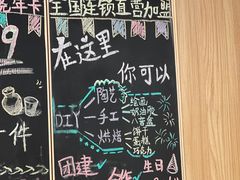 年卡
9
一件
全国连锁直营加盟
在这里
你可以
DIY
陶艺
手工
烘焙
绘画
奶油胶
饼干
蛋糕
巧克力
团建
生日